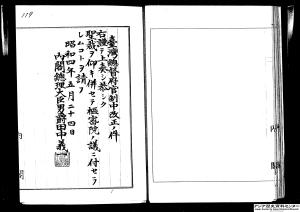 119
臺灣總督府官制中改正ノ件
右謹テ上奏シ恭シク
聖裁ヲ仰キ併セテ樞密院ノ議ニ付セラ
レムコトヲ請フ
昭和四年五月二十四日
內閣總理大臣男爵田中義一
內閣
アジア歴史資料センター